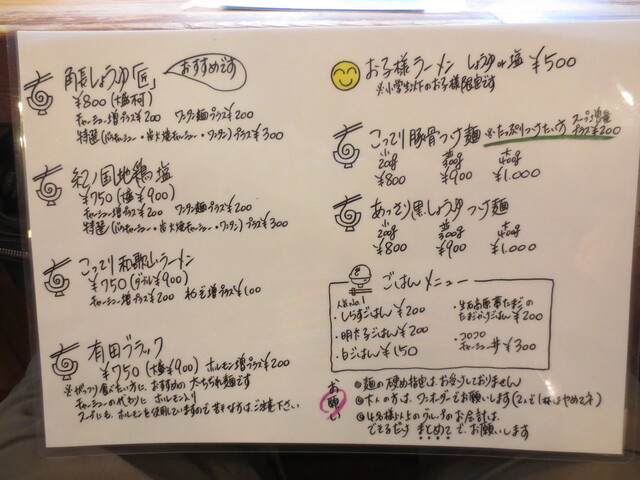 角長しょうゆ「匠」 おすすめです
¥800(大盛¥900)
チャーシュー増プラス¥200 ワンタン麺プラス¥200
特選(バラチャーシュー・炭火焼チャーシュー・ワンタン)プラス¥300
紀ノ国地鶏塩
¥750(大盛¥900)
チャーシュー増プラス¥200 ワンタン麺プラス¥200
特選(バラチャーシュー・炭火焼チャーシュー・ワンタン)プラス¥300
こってり和歌山ラーメン
¥750(ダブル¥900)
チャーシュー増プラス¥200 ねぎ増プラス¥100
有田ブラック
¥750(大盛¥900) ホルモン増プラス¥200
※がっつり食べたい方に、おすすめの太ちぢれ麺です
チャーシューの代わりにホルモン入り
スープにも、ホルモンを使用していますので苦手な方はご注意下さい
お子様ラーメン しょうゆor塩 ¥500
※小学生以下のお子様限定です
こってり豚骨つけ麺 ※たっぷりつけたい方 スープ増量プラス¥200
小 200g 並 300g 大 400g
¥800 ¥900 ¥1.000
あっさり黒しょうゆつけ麺
小 200g 並 300g 大 400g
¥800 ¥900 ¥1.000
ごはんメニュー
人気No.1
・しらすごはん¥200
・明太子ごはん¥200
・白ごはん¥150
・生石高原夢たまごの
たまごかけごはん¥200
・コロコロ
チャーシュー丼¥300
お願い
◎麺の硬め指定は、お受けしておりません
◎大人の方は、ワンオーダーでお願いします(2人で1杯はやめてネ)
◎4名様以上のグループのお会計は、
できるだけまとめてで、お願いします